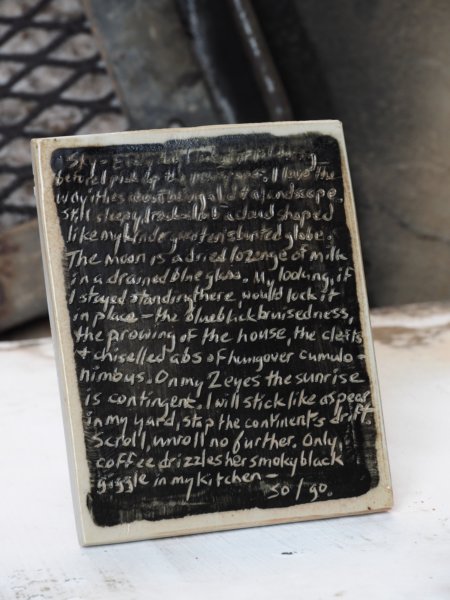 Sky – Every day
before I pick up the . I love the
way it landscape,
still sleepy, a cloud shaped
like my kindergarten's buried globe.
The moon is a dried lozenge of milk
in a drained blue glass. My looking, if
I stayed standing there would lock it
in place – the blueblack bruisedness,
the prowing of the house, the clefts
+ chiselled abs of hungover cumulo-
nimbus. On my 2 eyes the sunrise
is contingent. I will stick like a spear
in my yard, stop the continents drift.
Scroll, unroll no further. Only
coffee drizzles her smoky black
giggle in my kitchen –
so I go.